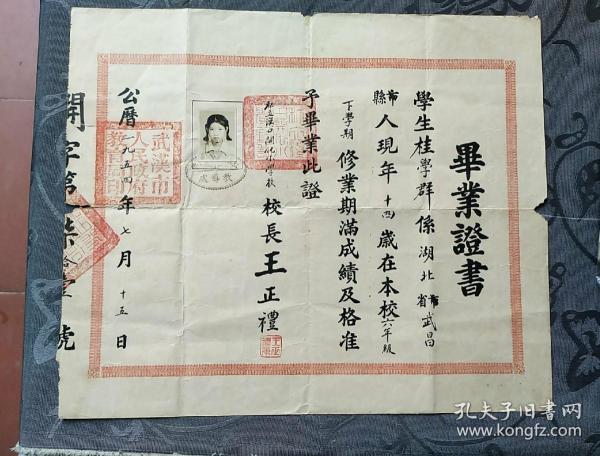 畢業證書
學生桂學群係湖北省市武昌
縣市人現年十四歲在本校六年級
下學期修業期滿成績及格准
予畢業此證
校長王正禮
公曆一九五四年七月十五日
武漢市
人民政府
教育局印
開字第柒拾壹號
孔夫子旧书网
www.kongfz.com